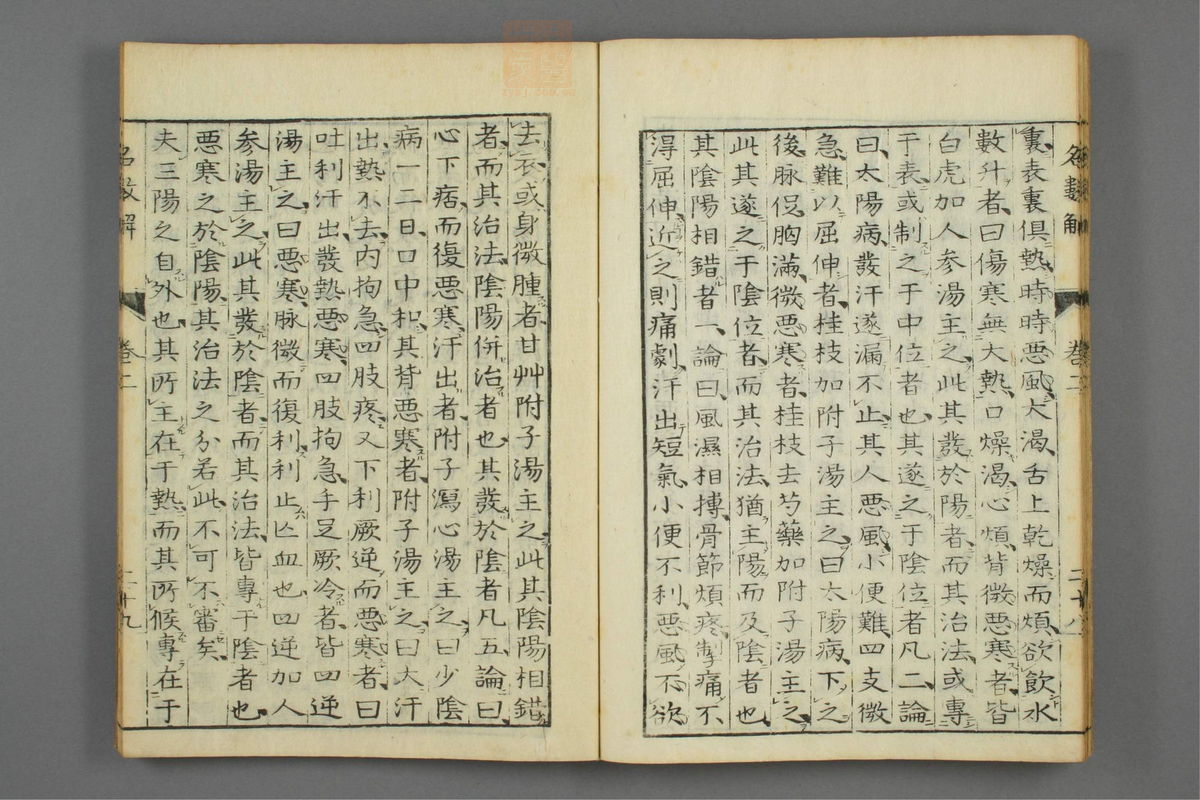 裏表裏俱熱、時時惡風、大渴、舌上乾燥而煩、欲飲水
數升者、曰傷寒無大熱、口燥渴、心煩、背微惡寒者、皆
白虎加人參湯主之、此其發於陽者、而其治法、或專
于表、或制之于中位者也、其遂之于陰位者凡二、論
曰、太陽病、發汗遂漏不止、其人惡風、小便難、四支微
急、難以屈伸者、桂枝加附子湯主之、曰太陽病、下之
後、脉促、胸滿、微惡寒者、桂枝去芍藥加附子湯主之、
此其遂之于陰位者、而其治法、猶主陽而及陰者也、
其陰陽相錯者一、論曰、風濕相搏、骨節煩疼、掣痛、不
得屈伸、近之則痛劇、汗出短氣、小便不利、惡風不欲
去衣、或身微腫者、甘艸附子湯主之、此其陰陽相錯
者、而其治法、陰陽併治者也、其發於陰者凡五、論曰、
心下痞、而復惡寒、汗出者、附子瀉心湯主之、曰少陰
病一二日、口中和、其背惡寒者、附子湯主之、曰大汗
出、熱不去、内拘急、四肢疼、又下利厥逆而惡寒者、曰
吐利汗出、發熱惡寒、四肢拘急、手足厥冷者、皆四逆
湯主之、曰惡寒、脉微而復利、利止亡血也、四逆加人
參湯主之、此其發於陰者、而其治法、皆專于陰者也、
惡寒之於陰陽、其治法之分若此、不可不審矣、
夫三陽之自外也、其所主在于熱、而其所候專在于
名數解
卷二
二十八
名數解
卷二
二十九